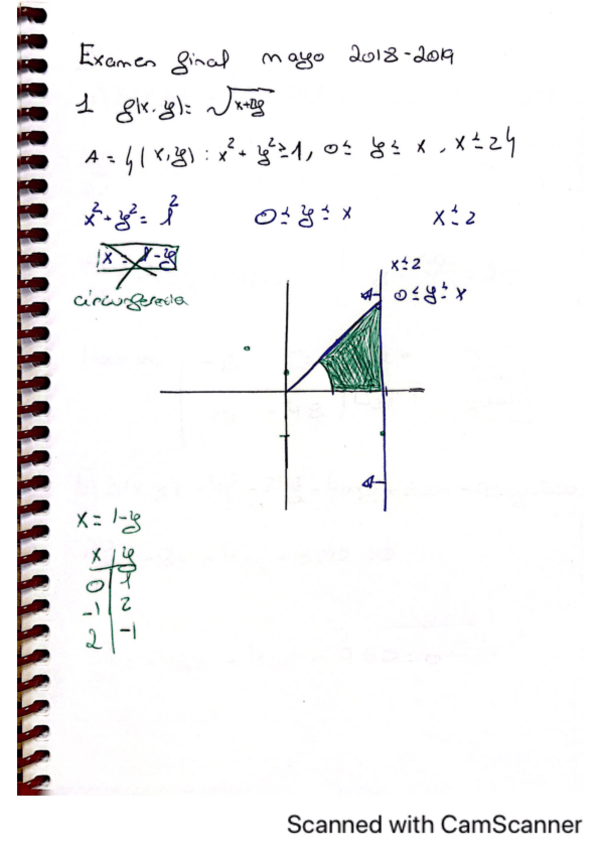 Examen final mayo 2018-2019
1 f(x,y)= 
A = {(x,y) : x² + y² ≥ 1, 0 ≤ y ≤ x, x ≤ 2}
x² + y² = 1² 0 ≤ y ≤ x x ≤ 2
x = 1-y
circunferencia
x ≤ 2
0 ≤ y ≤ x
x = 1-y
x y
0 1
-1 2
2 -1
Scanned with CamScanner